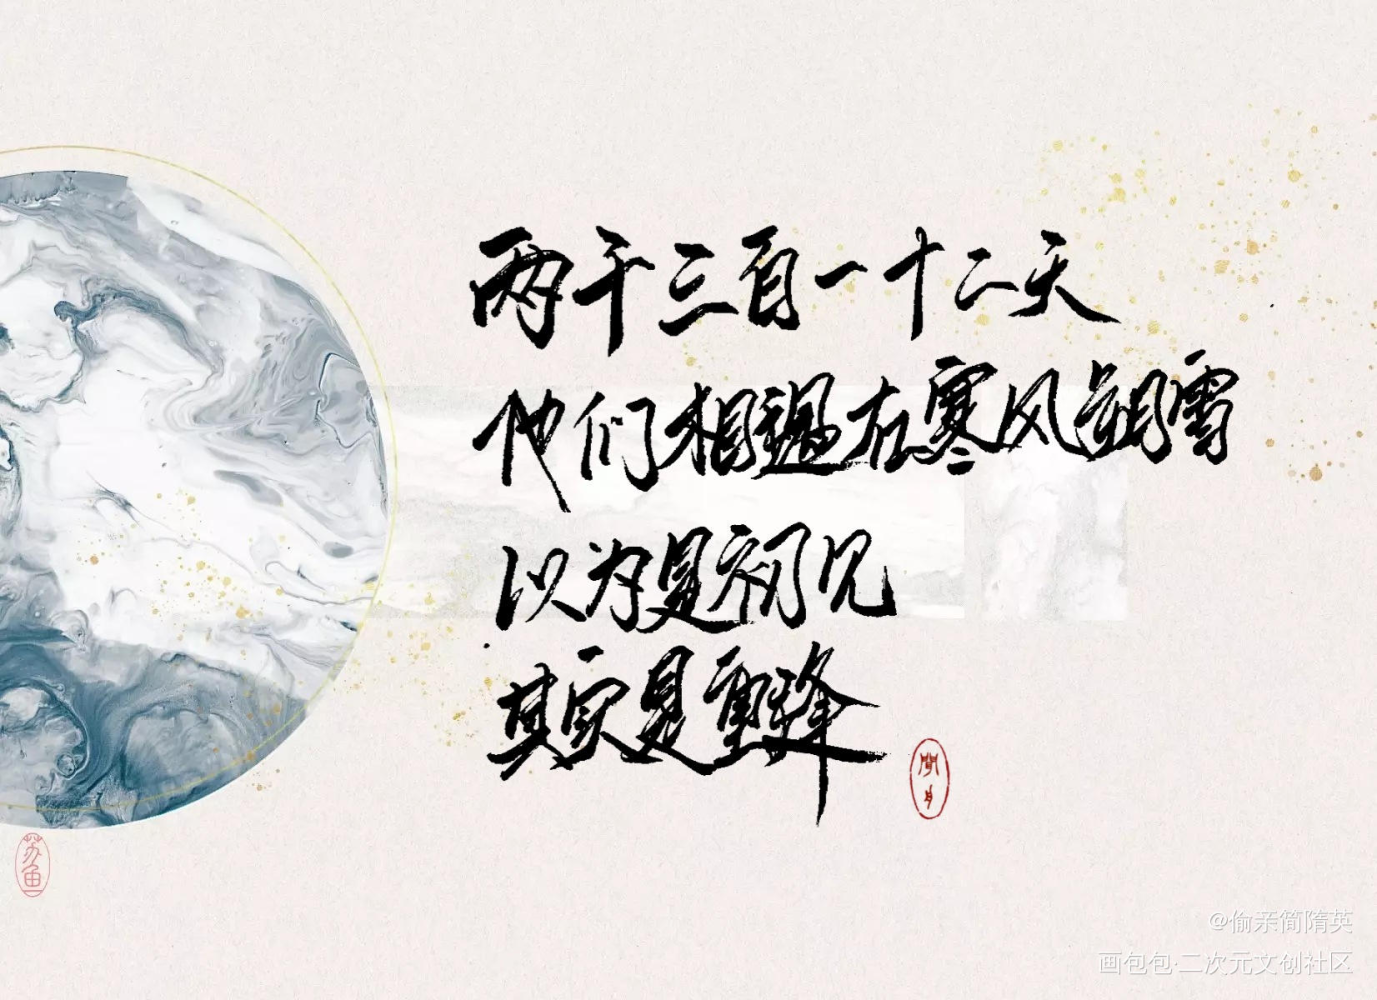 两千三百一十二天
他们相遇在寒风朔雪
以为是初见
其实是重逢
苏鱼
@偷亲简隋英
画包包·二次元文创社区